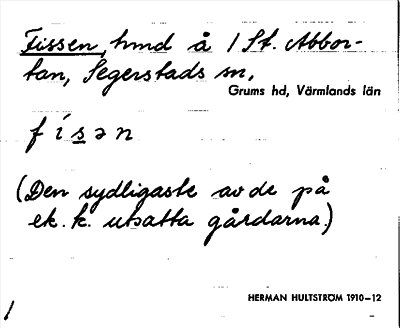 Fissen, hmd å 1 St. Abbor-
tan, Segerstads sn,
Grums hd, Värmlands län
físən
(Den sydligaste av de på
ek. k. utsatta gårdarna.)
HERMAN HULTSTRÖM 1910–12
1